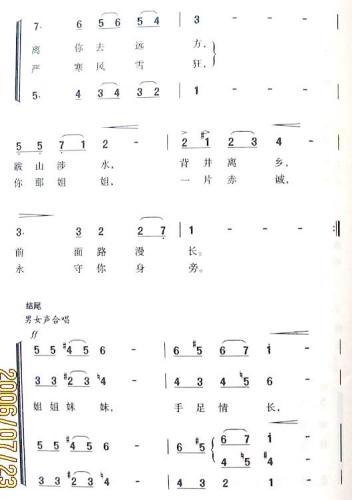 7. 6 5 6 5 4 | 3 - - -
离 你 去 远 方，
严 寒 风 雪 狂，
5. 4 3 4 3 2 | 1 - - -
5 5 7 1 2 - | 2 1 2 3 4 -
跋 山 涉 水， 背 井 离 乡，
你 那 姐 姐， 一 片 赤 诚，
3. 3 2 2 7 | 1 - - - :‖
前 面 路 漫 长。
永 守 你 身 旁。
结尾
男女声合唱
ff
5 5 #4 5 6 - | 6 5 6 7 1 -
3 3 #2 3 ♮4 - | 4 3 #4 5 6 -
姐 姐 妹 妹， 手 足 情 长，
2006/07/23